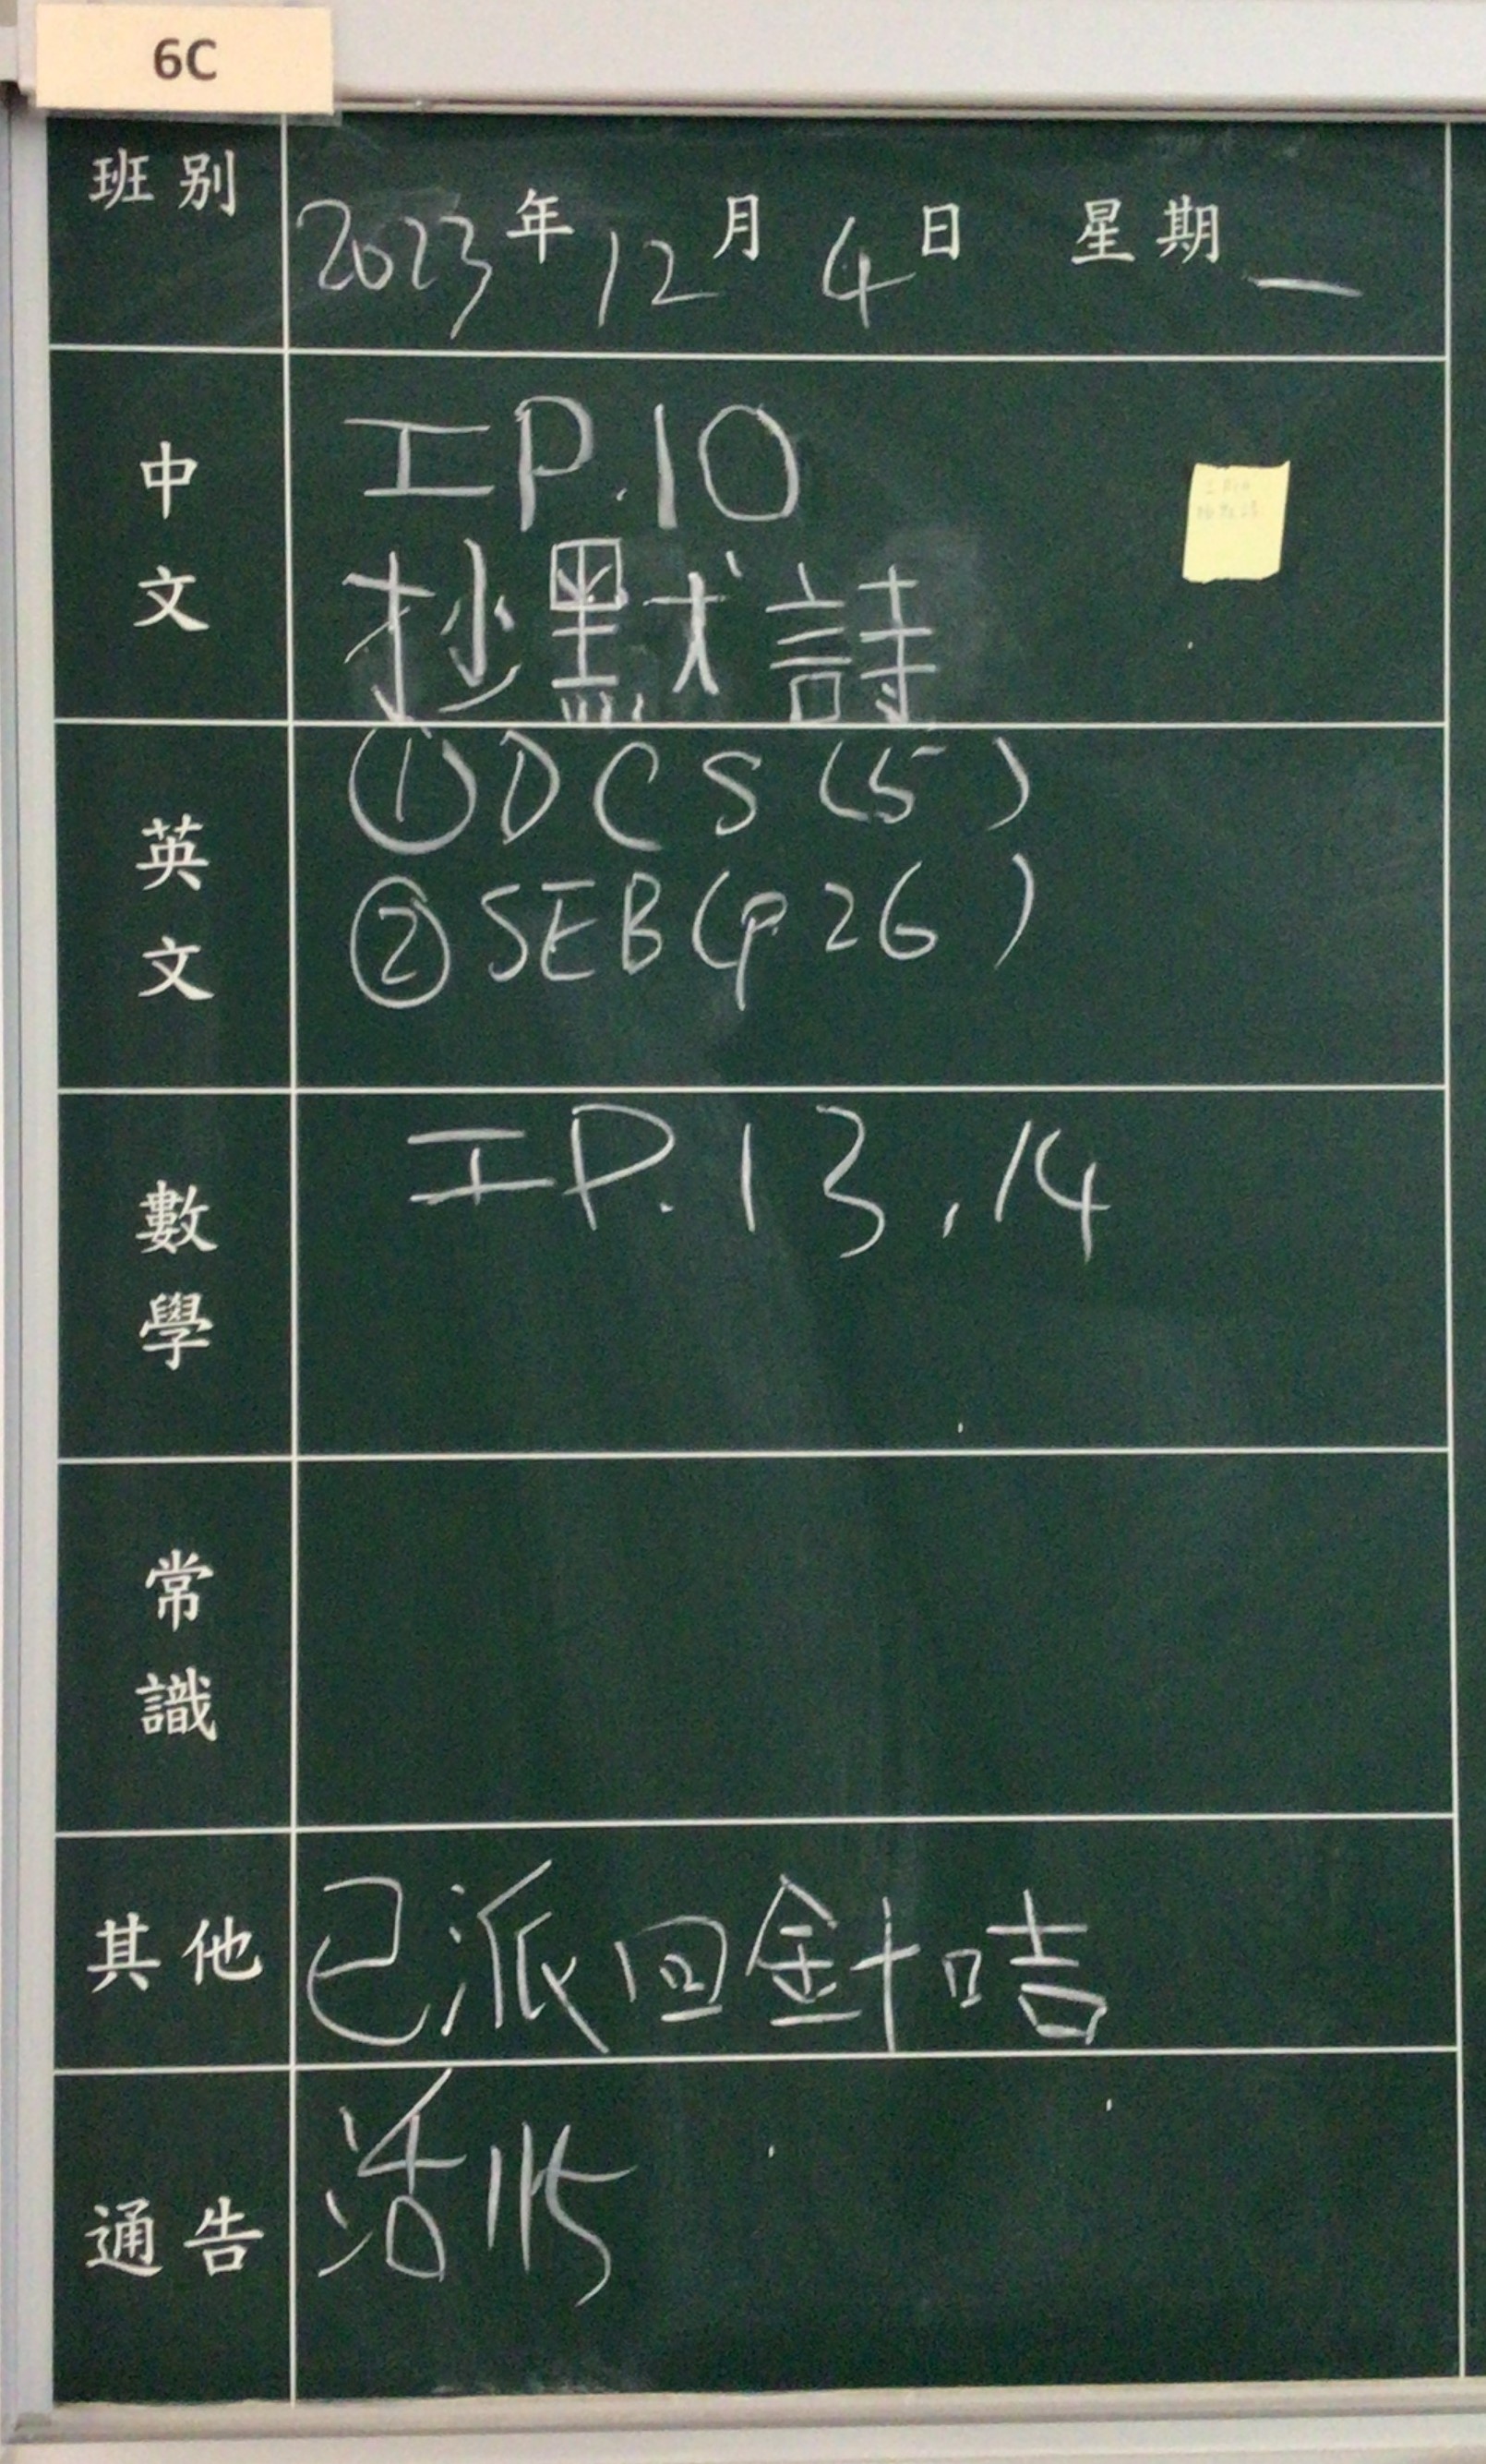 6C
班別
2023年12月4日 星期一
中文
工P.10
抄默詩
英文
①DCS(5)
②SEB(p.26)
數學
工P.13,14
常識
其他
已派回金十咭
通告
活115